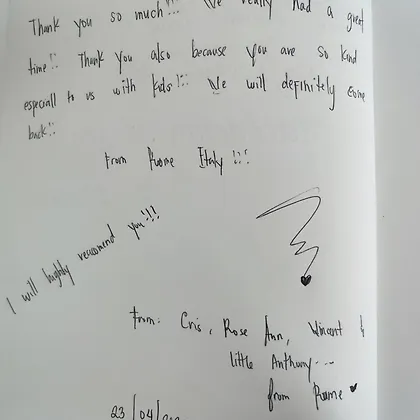 Thank you so much!!! We really had a great
time!! Thank you also because you are so kind
especiall to us with kids!!! We will definitely come
back!!
From Rome Italy!!!
I will highly recommend you!!!
From: Cris, Rose Ann, Vincent &
little Anthony---
from Rome
23/04/